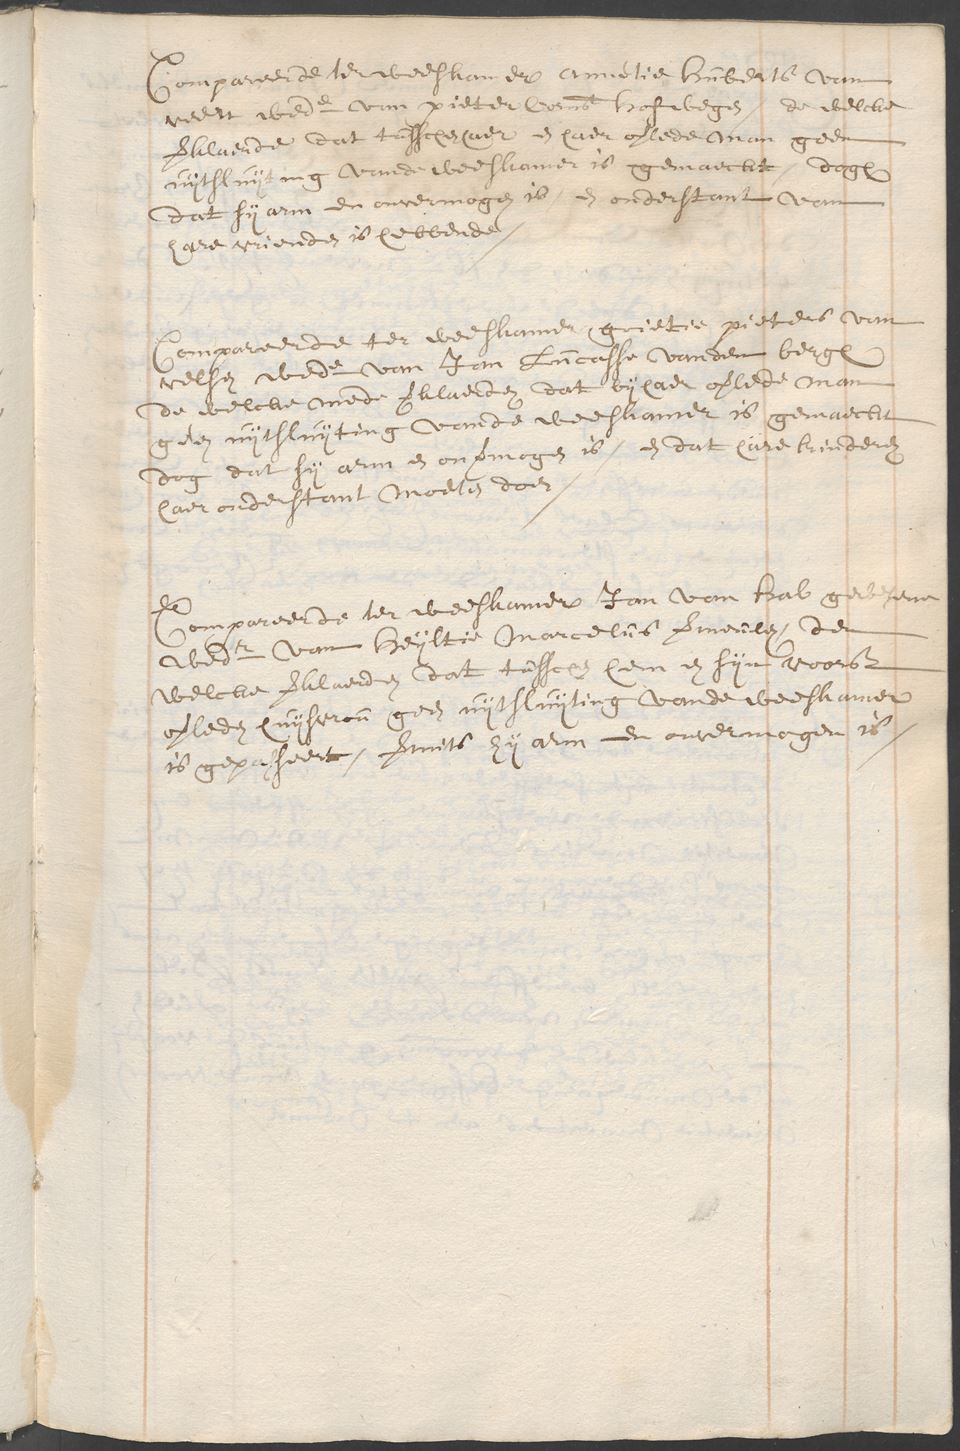 Compareerde ter weeskamer annetie Huberts van
weert wede van pieter Hofwegen / de welcke
verklaerde dat tusschen haer en haer overlede man geen
uijtsluijting vande weeskamer is gemaeckt / dogh
dat sij arm en onvermogen is / en onderstant van
hare vrienden is hebbende /
Compareerde ter weeskamer grietie pieters van
velsen wede van Jan Lucasse vanden bergh
de welcke mede verklaerden dat bij haer overlede man
geen uijtsluijting vande weeskamer is gemaeckt
dog dat sij arm en onvermogen is / en dat hare kinderen
haer onderstant moeten doen /
Compareerde ter weeskamer Jan van Hal gewesene
wedr van Heijltie Marcelus vermeulen / den
welcke verklaerden dat tusschen hem en sijn voorsz
overleden huijsvrou geen uijtsluijting vande weeskamer
is gepasseert / vermits hij arm en onvermogen is /